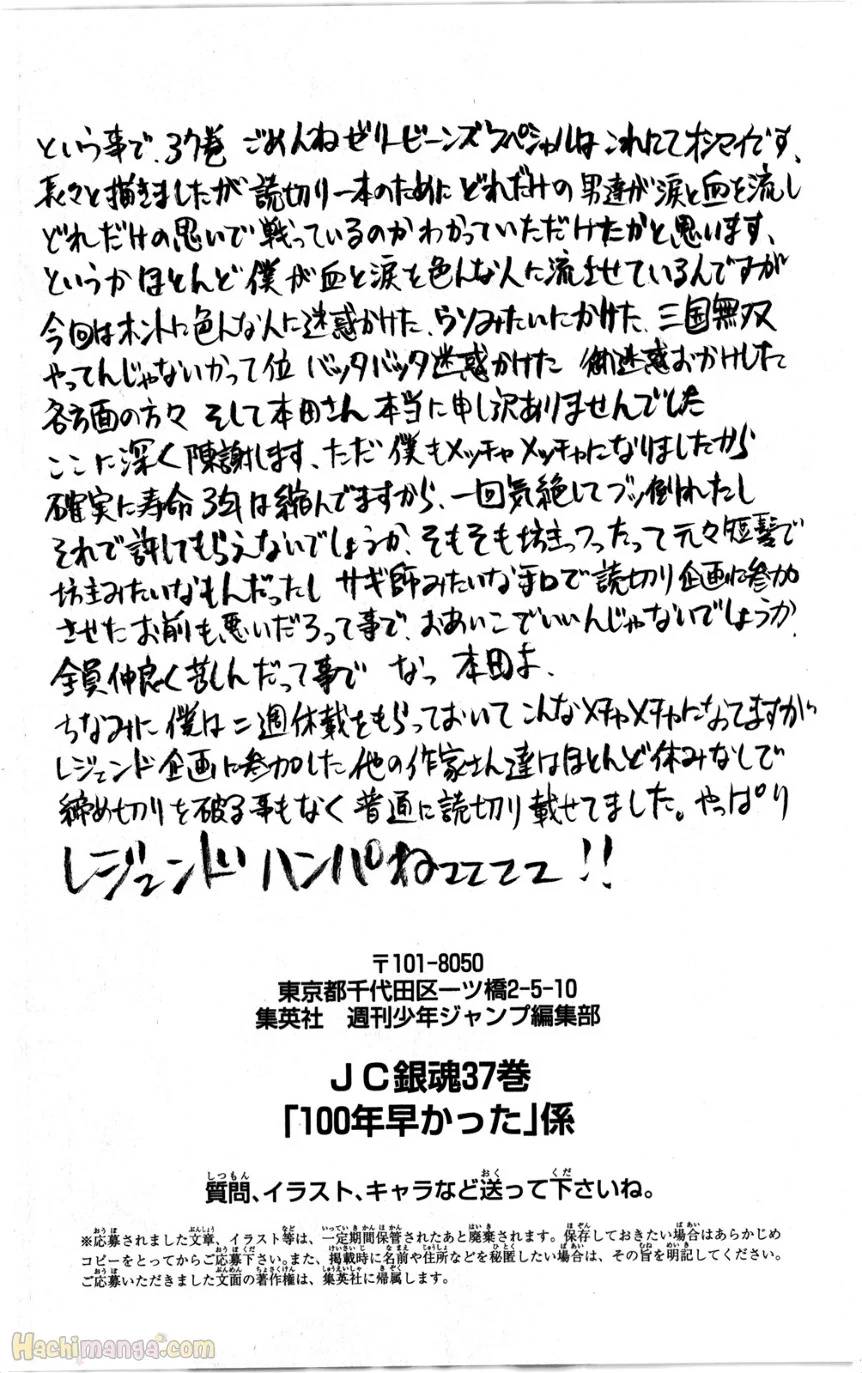 という事で、37巻 ごめんねゼリービーンズスペシャルは これにてオシマイです、
長々と描きましたが読切り一本のために どれだけの男達が涙と血を流し
どれだけの思いで戦っているのかわかっていただけたかと思います、
というかほとんど僕が血と涙を色んな人に流させているんですが
今回はホントに色んな人に迷惑かけた、ウソみたいにかけた、三国無双
やってんじゃないかって位 バッタバッタ迷惑かけた 御迷惑おかけした
各方面の方々 そして本田さん本当に申し訳ありませんでした
ここに深く陳謝します、ただ僕もメッチャメッチャになりましたから
確実に寿命3年は縮んでますから、一回気絶してブッ倒れたし
それで許してもらえないでしょうか、そもそも坊主っつったって元々短髪で
坊主みたいなもんだったし サギ師みたいな手口で読切り企画に参加
させたお前も悪いだろって事で、おあいこでいいんじゃないでしょうか、
全員仲良く苦しんだって事で なっ 本田よ、
ちなみに僕は二週休載をもらっておいてこんなメチャメチャになってますが
レジェンド企画に参加した他の作家さん達はほとんど休みなしで
締め切りを破る事もなく普通に読切り載せてました。やっぱり
レジェンドハンパねェェェェ!!
〒101-8050
東京都千代田区一ツ橋2-5-10
集英社 週刊少年ジャンプ編集部
JC銀魂37巻
「100年早かった」係
質問、イラスト、キャラなど送って下さいね。
※応募されました文章、イラスト等は、一定期間保管されたあと廃棄されます。保存しておきたい場合はあらかじめ
コピーをとってからご応募下さい。また、掲載時に名前や住所などを秘匿したい場合は、その旨を明記してください。
ご応募いただきました文面の著作権は、集英社に帰属します。
Hachimanga.com